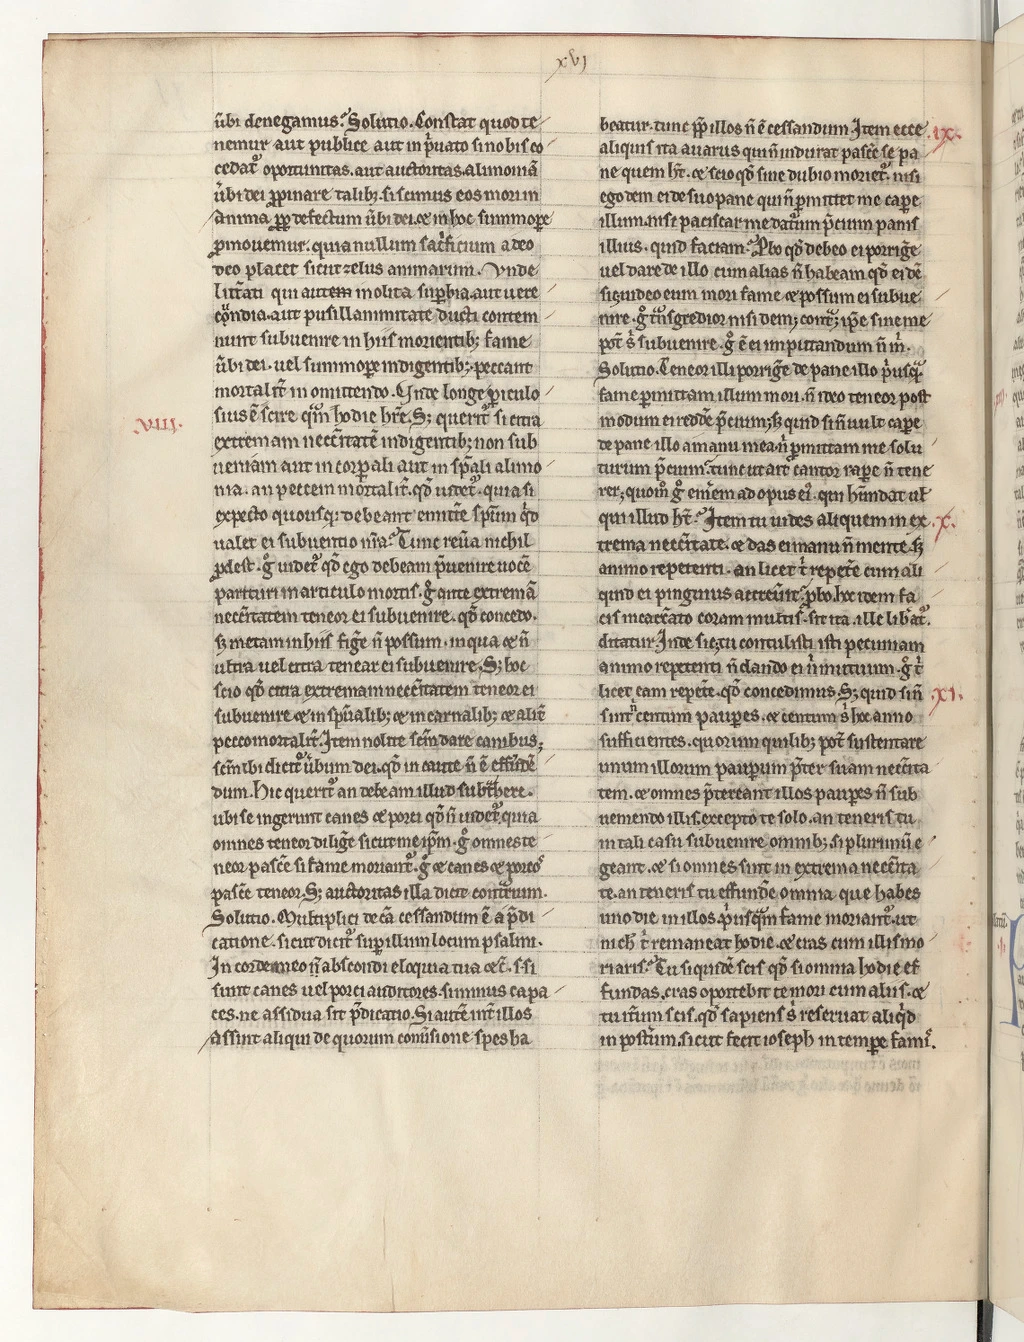 xvi
ũbi denegamus. Solutio. Constat quod te
nemur aut publice aut in p̃uato si nobis co
cedat᷑ oportunitas. aut auctoritas. alimoniã
ũbi dei ꝓpinare talibꝫ. si scimus eos mori in
anima ꝓpt̃ defectum ũbi dei. ⁊ in hoc summoꝑe
ꝓmouemur. quia nullum sac̃ficium adeo
deo placet sicut zelus animarum. Vnde
litt̃ati qui autem molita suꝑbia. aut uere
cũndia. aut pusillanimitate ducti contem
nunt subuenire in hiis morientibꝫ fame
ũbi dei. uel summoꝑe indigentibꝫ. peccant
mortalit̃ in omittendo. Vnde longe ꝑiculo
sius ẽ scire q̃m hodie hr̃e. Sꝫ querit᷑ si citra
VIII.
extremam neccĩtatẽ indigentibꝫ non sub
ueniam aut in corꝑali aut in sp̃ali alimo
nia. an peccem mortalit̃. qđ uidet᷑. quia si
expecto quousqꝫ debeant emittẽ sp̃um qͥd
ualet ei subuentio nr̃a. Tunc reũa nichil
ꝓdest. g̊ uidet᷑ qđ ego debeam p̃uenire uocẽ
parituri in articulo mortis. g̊ ante extremã
neccĩtatem teneor ei subuenire. qđ concedo.
sꝫ metam in hiis fig̃e ñ possum. in qua ⁊ ñ
ultra uel citra tenear ei subuenire. Sꝫ hoc
scio qđ citra extremam neccĩtatem teneor ei
subuenire ⁊ in sp̃ualibꝫ ⁊ in carnalibꝫ ⁊ alit̃
pecco mortalit̃. Item nolite sc̃m dare canibus;
sc̃m ibi dicit᷑ ũbum dei. qđ in caute ñ ẽ effũdẽ
dum. Hic querit᷑ an debeam illud subt̃here.
ubi se ingerunt canes ⁊ porci qđ ñ uidet᷑. quia
omnes teneor dilig̃e sicut me ip̃m. g̊ omnes te
neor pascẽ si fame moriant᷑. g̊ ⁊ canes ⁊ porcos
pascẽ teneor. Sꝫ auctoritas illa dicit cont̃rium.
Solutio. Multiplici de cã cessandum ẽ a p̃di
catione. sicut dicit᷑ suꝑ illum locum psalmi.
In corde meo ñ abscondi eloquia tua ⁊c̃. s. si
sunt canes uel porci auditores. simmus capa
ces. ne assidua sit p̃dicatio. Si autẽ int̃ illos
assint aliqui de quorum conũsione spes ha
beatur. tunc ꝓp̃ illos ñ ẽ cessandum. Item ecce
IX.
aliquis ita auarus qui ñ indurat pascẽ se pa
ne quem ht̃. ⁊ scio qđ sine dubio moriet᷑. nisi
ego dem ei de suo pane qui ñ ꝑmittet me caꝑe
illum. nisi paciscar me datũum p̃cium panis
illius. quid faciam. Pbo qđ debeo ei porrig̃e
uel dare de illo cum alias ñ habeam qđ ei dẽ
sic̣ uideo eum mori fame ⁊ possum ei subue
nire. g̊ t̃nsgredior nisi dem; cont̃ꝫ ip̃e sine me
pot̃ s̃ subuenire. g̊ ñ ẽ ei imputandum ñ m̃.
Solutio. Teneor illi porrig̃e de pane illo p̃usq̃
fame ꝑmittam illum mori. ñ ideo teneor post
modum ei reddẽ p̃cium; sꝫ quid si ñ uult caꝑe
de pane illo a manu mea. ñ ꝑmittam me solu
turum p̃cium. tunc utar t̃ cantor raꝑe ñ tene
rer; quom̊ g̊ emẽem ad opus ei᷑. qui hũndat ul̃
qui illud ht̃. Item tu uides aliquem in ex
X.
trema neccĩtate. ⁊ das ei manu ñ mente. sꝫ
animo repetenti. an licet t̃ repetẽ cum ali
quid ei pinguius accreũit. pbo. hoc idem fa
cis in cat̃cato coram multis. sit ita. ille libat᷑.
ditatur. Inde sic. tu contulisti isti pecuniam
animo repetenti ñ dando ei ñ mutuum. g̊ t̃
licet eam repetẽ. qđ concedimus. Sꝫ quid si ñ
XI.
sint centum pauꝑes. ⁊ centum s̃ hoc anno
sufficientes. quorum quilibꝫ pot̃ sustentare
unum illorum pauꝑum p̃ter suam neccĩta
tem. ⁊ omnes p̃tereant illos pauꝑes ñ sub
ueniendo illis. excepto te solo. an teneris tu
in tali casu subuenire omnibꝫ. si plurimũ e
geant. ⁊ si omnes sint in extrema neccĩta
te. an teneris tu effundẽ omnia que habes
uno die in illos p̃usq̃m fame moriant᷑. ut
nich̃ t̃ remaneat hodie. ⁊ cras cum illis mo
riaris. Tu siquidẽ scis qđ si omnia hodie ef
fundas. cras oportebit te mori cum aliis. ⁊
tu iñum scis. qđ sapiens s̃ reseruat aliqͥd
in post̃um. sicut fecit ioseph in temꝑe famis.